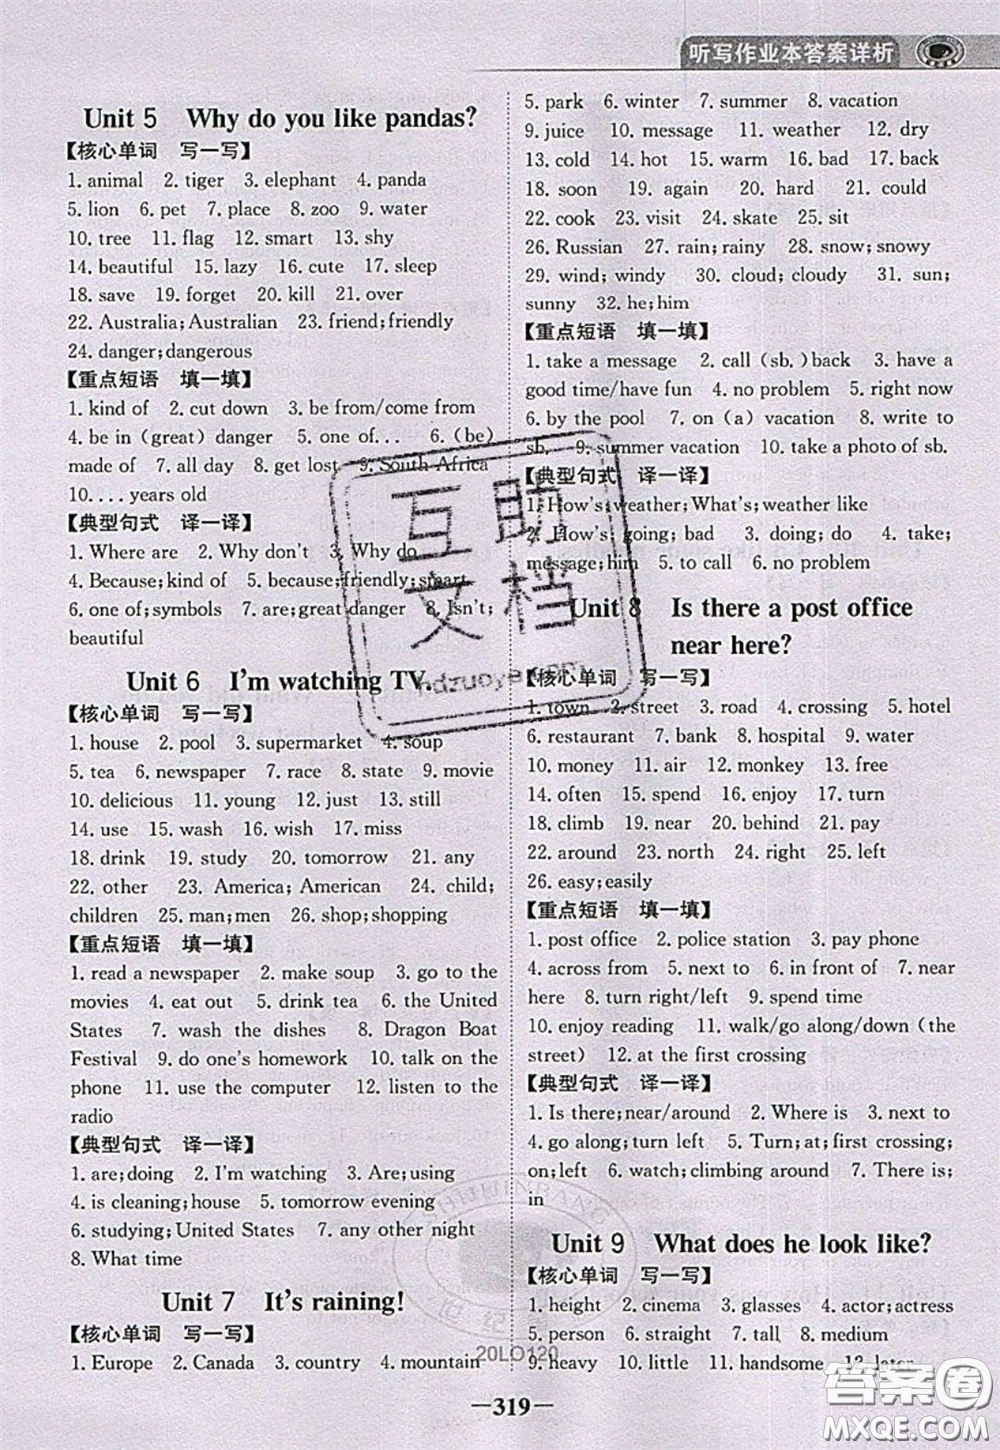 听写作业本答案详析
Unit 5 Why do you like pandas?
【核心单词 写一写】
1. animal 2. tiger 3. elephant 4. panda
5. lion 6. pet 7. place 8. zoo 9. water
10. tree 11. flag 12. smart 13. shy
14. beautiful 15. lazy 16. cute 17. sleep
18. save 19. forget 20. kill 21. over
22. Australia; Australian 23. friend; friendly
24. danger; dangerous
【重点短语 填一填】
1. kind of 2. cut down 3. be from/come from
4. be in (great) danger 5. one of... 6. (be)
made of 7. all day 8. get lost 9. South Africa
10. ... years old
【典型句式 译一译】
1. Where are 2. Why don't 3. Why do
4. Because; kind of 5. because; friendly; smart
6. one of; symbols 7. are; great danger 8. Isn't;
beautiful
Unit 6 I'm watching TV.
【核心单词 写一写】
1. house 2. pool 3. supermarket 4. soup
5. tea 6. newspaper 7. race 8. state 9. movie
10. delicious 11. young 12. just 13. still
14. use 15. wash 16. wish 17. miss
18. drink 19. study 20. tomorrow 21. any
22. other 23. America; American 24. child;
children 25. man; men 26. shop; shopping
【重点短语 填一填】
1. read a newspaper 2. make soup 3. go to the
movies 4. eat out 5. drink tea 6. the United
States 7. wash the dishes 8. Dragon Boat
Festival 9. do one's homework 10. talk on the
phone 11. use the computer 12. listen to the
radio
【典型句式 译一译】
1. are; doing 2. I'm watching 3. Are; using
4. is cleaning; house 5. tomorrow evening
6. studying; United States 7. any other night
8. What time
Unit 7 It's raining!
【核心单词 写一写】
1. Europe 2. Canada 3. country 4. mountain
5. park 6. winter 7. summer 8. vacation
9. juice 10. message 11. weather 12. dry
13. cold 14. hot 15. warm 16. bad 17. back
18. soon 19. again 20. hard 21. could
22. cook 23. visit 24. skate 25. sit
26. Russian 27. rain; rainy 28. snow; snowy
29. wind; windy 30. cloud; cloudy 31. sun;
sunny 32. he; him
【重点短语 填一填】
1. take a message 2. call (sb.) back 3. have a
good time/have fun 4. no problem 5. right now
6. by the pool 7. on (a) vacation 8. write to
sb. 9. summer vacation 10. take a photo of sb.
【典型句式 译一译】
1. How's; weather; What's; weather like
2. How's; going; bad 3. doing; do 4. take;
message; him 5. to call 6. no problem
Unit 8 Is there a post office
near here?
【核心单词 写一写】
1. town 2. street 3. road 4. crossing 5. hotel
6. restaurant 7. bank 8. hospital 9. water
10. money 11. air 12. monkey 13. free
14. often 15. spend 16. enjoy 17. turn
18. climb 19. near 20. behind 21. pay
22. around 23. north 24. right 25. left
26. easy; easily
【重点短语 填一填】
1. post office 2. police station 3. pay phone
4. across from 5. next to 6. in front of 7. near
here 8. turn right/left 9. spend time
10. enjoy reading 11. walk/go along/down (the
street) 12. at the first crossing
【典型句式 译一译】
1. Is there; near/around 2. Where is 3. next to
4. go along; turn left 5. Turn; at; first crossing;
on; left 6. watch; climbing around 7. There is;
in
Unit 9 What does he look like?
【核心单词 写一写】
1. height 2. cinema 3. glasses 4. actor; actress
5. person 6. straight 7. tall 8. medium
9. heavy 10. little 11. handsome 12. later
20LO120
—319—
互助
文档
hdzuoye.com
答案圈
MXQE.COM